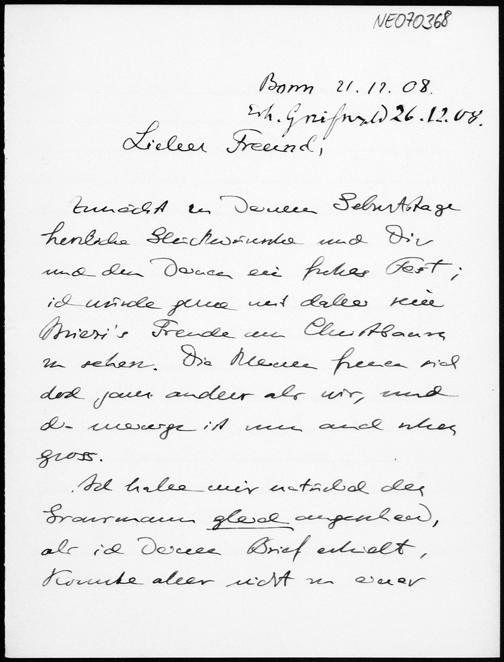 NE070368
Bonn 21.12.08.
Erh. Greifswald 26.12.08.
Lieber Freund,
Zunächst zu Deinem Geburtstage
herzliche Glückwünsche und Dir
und den Deinen ein frohes Fest;
ich würde gerne mit dabei sein
Freude am Christbaum
zu sehen. Die Kleinen freuen sich
doch ganz anders als wir, und
ist nun auch schon
gross.
Ich habe mir natürlich den
gleich angesehen,
als ich Deinen Brief erhielt,
konnte aber nicht zu einer